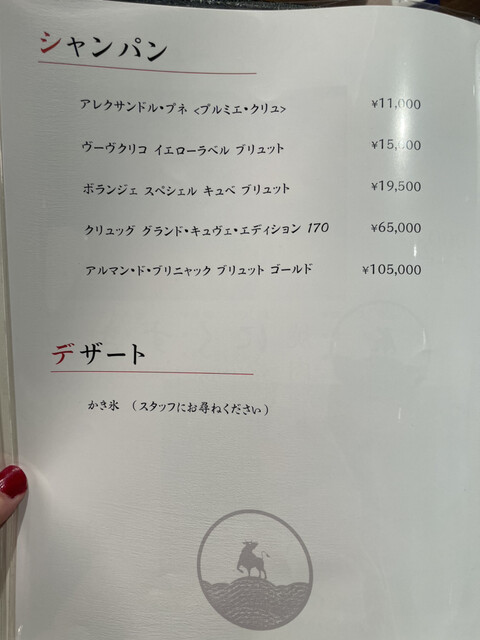 シャンパン
アレクサンドル・プネ <プルミエ・クリュ> ¥11,000
ヴーヴクリコ イエローラベル ブリュット ¥15,000
ボランジェ スペシェル キュベ ブリュット ¥19,500
クリュッグ グランド・キュヴェ・エディション 170 ¥65,000
アルマン・ド・ブリニャック ブリュット ゴールド ¥105,000
デザート
かき氷 (スタッフにお尋ねください)